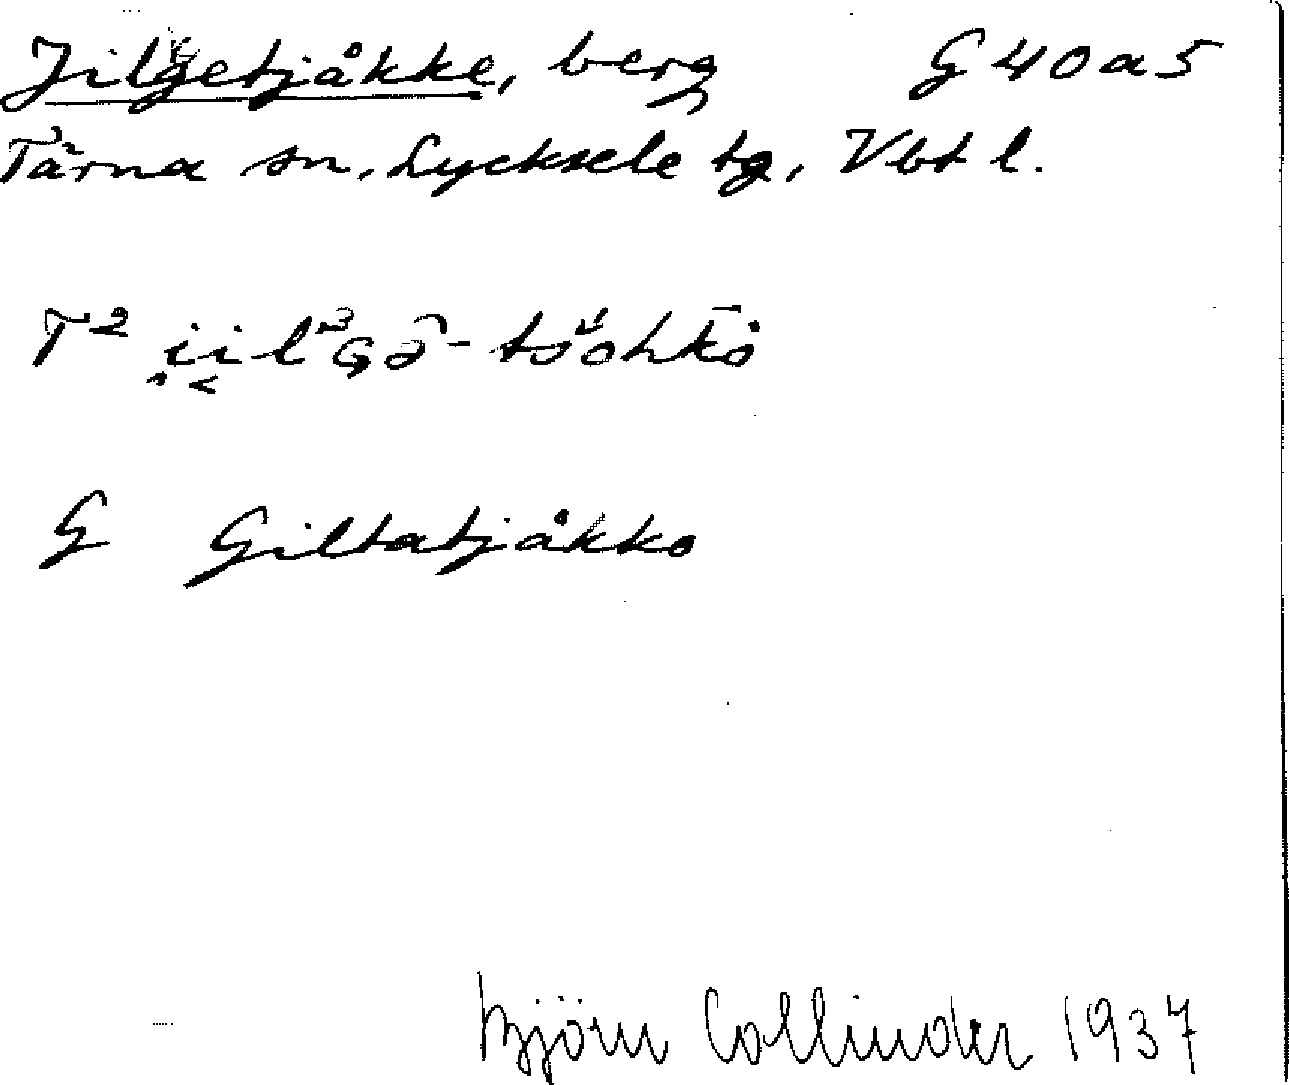 Jilgetjåkke, berg G40a5
Tärna sn, Lycksele tg, Vbt l.
T²
G Giltatjåkko
Björn Collinder 1937